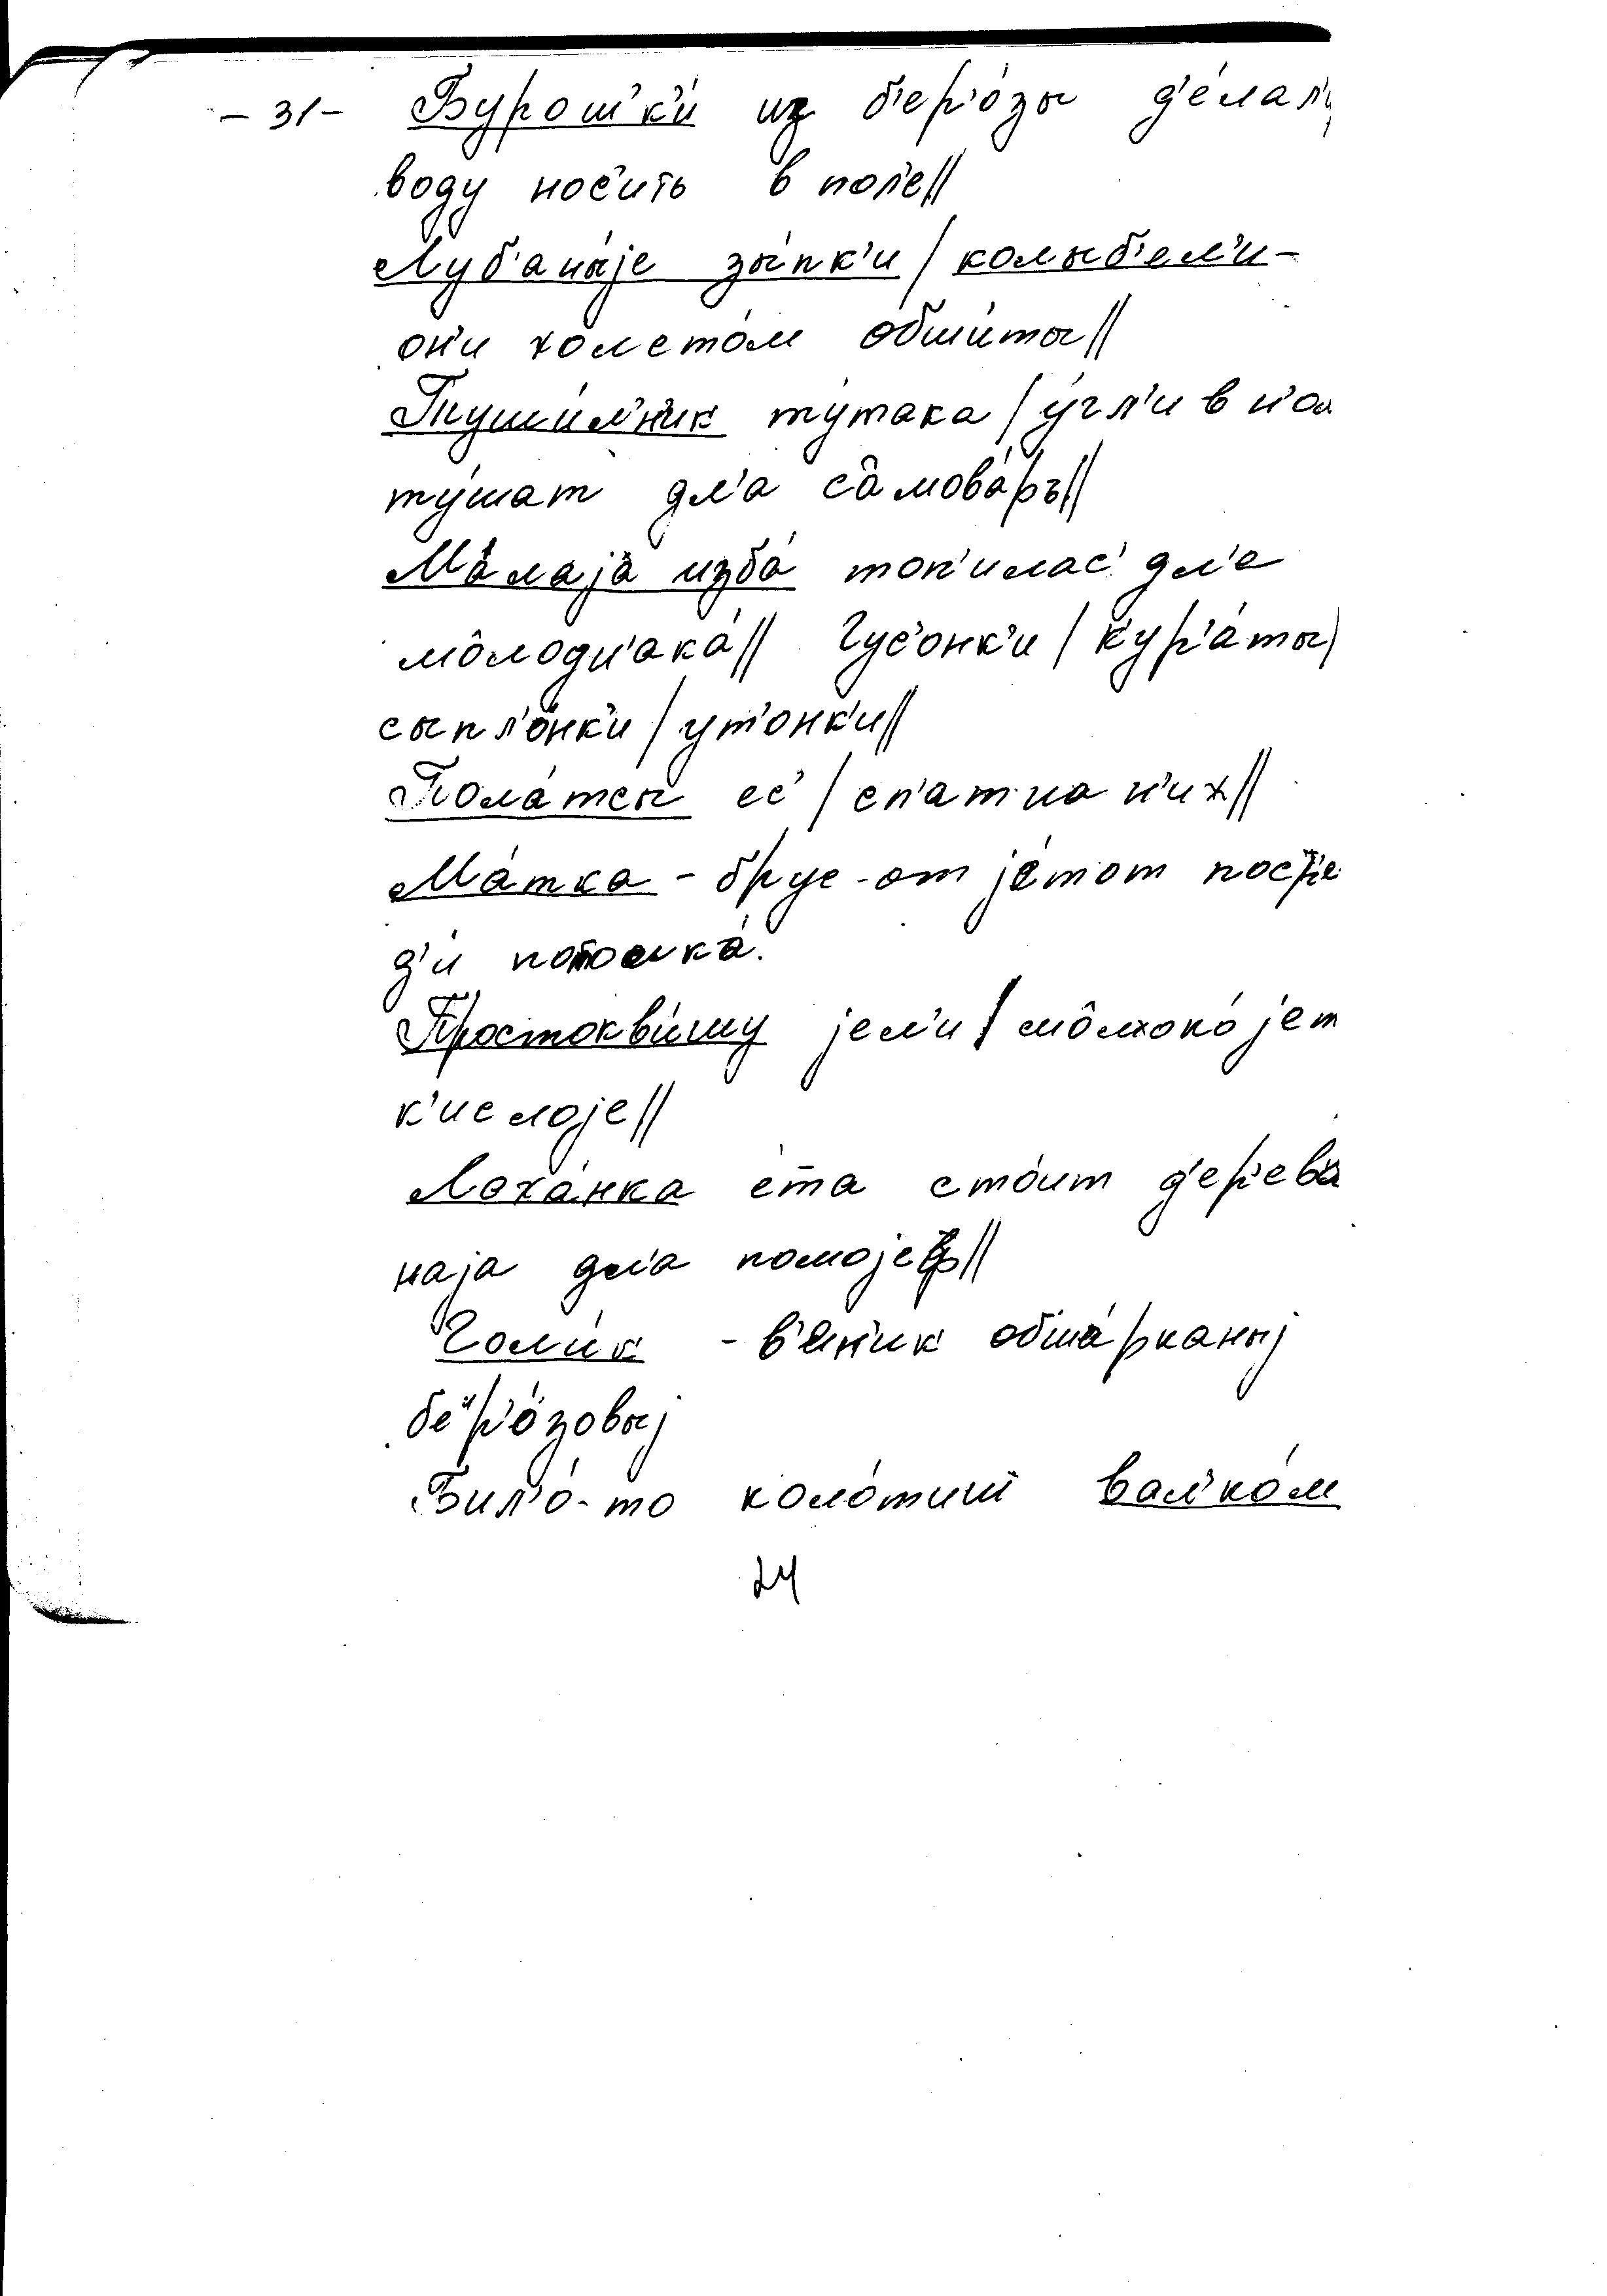 - 31 - Бурош'к'и из б'ер'о́зы д'е́лал'и
воду нос'ить в пол'е//
Луб'аныје зы́пк'и / колыб'ел'и -
он'и холстом обши́ты//
Туши́л'н'ик ту́така / у́гл'и в н'ом
ту́шат дл'а са̂мова́ръ//
Ма́лаја изба́ топ'илас' дл'е
мо̂лодн'ака́// Гус'онк'и / кур'а́ты/
сыпл'о́нк'и / ут'онк'и//
Пола́ты ес' / сп'ат на н'их//
Ма́тка - брус-от је́тот поср'е
д'и́ потолка́.
Простокви́шу јел'и / мо̂локо́ јет
к'ислоје//
Лоха́нка е́та сто́ит д'ер'ев'а
наја дл'а помојеф//
Голи́к - в'е́н'ик обша́рканыј
бе"р'о́зовыј
Бил'јо́-то коло́тиш вал'ко́м
24